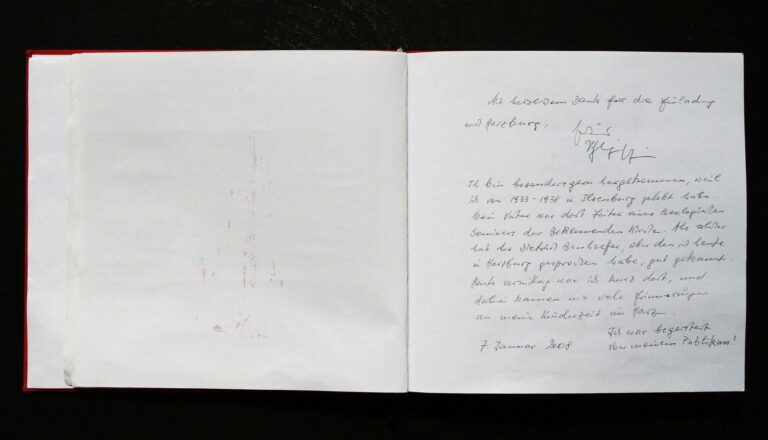 Mit herzlichem Dank für die Einladung
nach Harzburg,
Ich bin besonders gern hergekommen, weil
ich von 1933-1938 in Ilsenburg gelebt habe
Mein Vater war dort Leiter eines theologischen
Seminars der Bekennenden Kirche. Als solcher
hat er Dietrich Bonhoeffer, über den ich heute
in Harzburg gesprochen habe, gut gekannt.
Heute vormittag war ich kurz dort, und
dabei kamen mir viele Erinnerungen
an meine Kinderzeit im Harz.
Ich war begeistert
7. Januar 2008 von meinem Publikum!